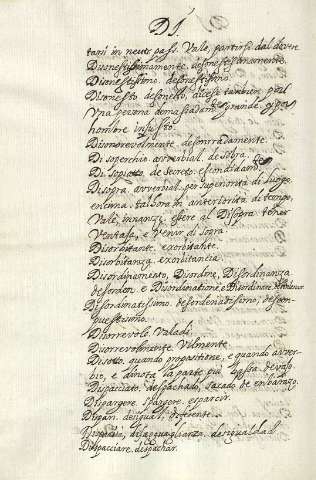 DS.
tarsi in neutr. pass. Vale, partirsi dal dovere
Disonestissimamente. desonestissimamente.
Disonestissimo. desonestissimo.
Disonesto desonesto, dicese tambien por
Una persona demasiadam.te grande, y por
hombre injusto.
Disonorevolmente desonrradamente.
Di soperchio, avverbial. de sobra.
Di soppiatto de secreto. escondidam.te
Disopra. avverbial. per superiorità di luogo.
encima. talhora in anteriorità di tempo,
Vale, innanzi. essere al Disopra. tener
Ventaja, e, venir di sopra.
Disorbitante, exorbitante.
Disorbitanza, exorbitancia
Disordinamento, Disordine, Disordinanza
desorden. e Disordenatione. e Disordinare
Disordinatissimo. desordenatissimo, descon
puestissimo.
Disorrevole. Valadi.
Disorrevolmente Vilmente.
Disotto, quando propositione, e quando avver-
bio, e dinota la parte più bassa. devajo
Dispacciato. despachado, sacado de embarazo.
Dispargere. spargere. esparcir.
Dispari. desigual, diferente.
Disparità, disagguaglianza. desigualdad
Dispacciare. despachar.